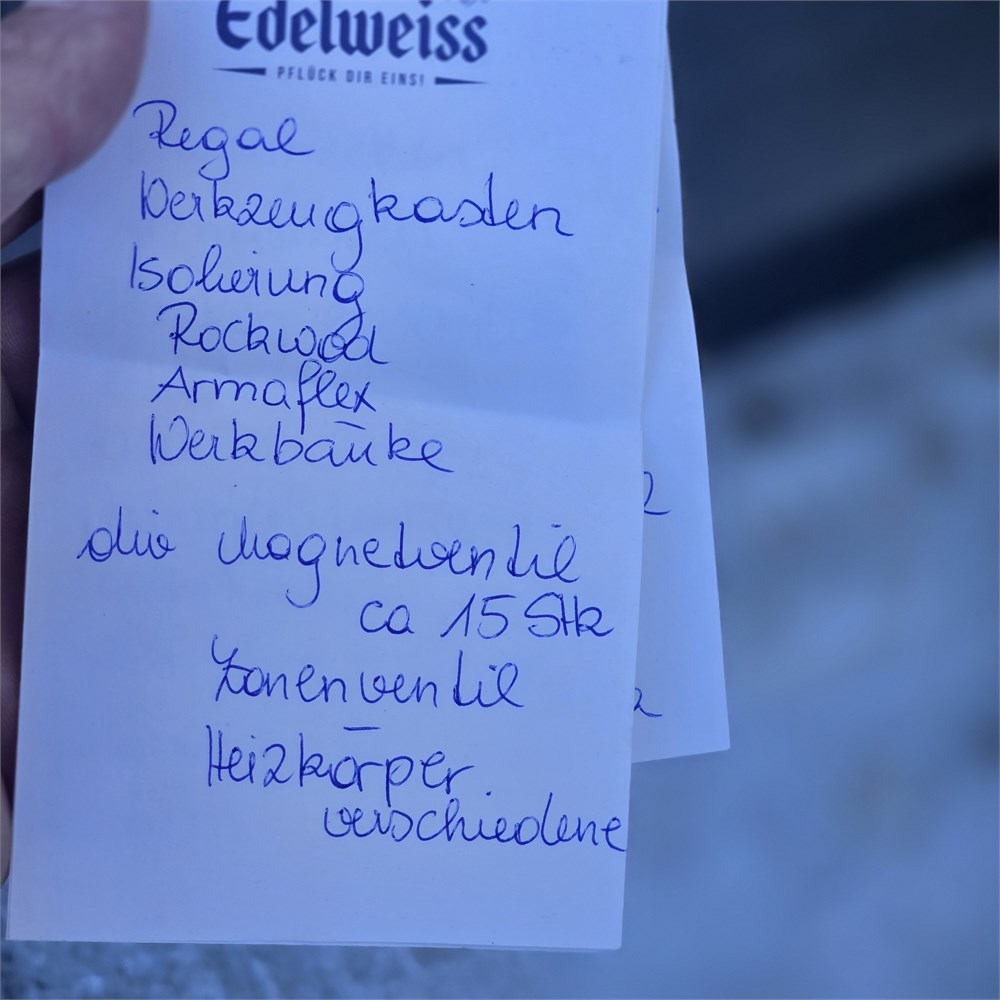 Edelweiss
PFLÜCK DIR EINS!
Regal
Werkzeugkasten
Isolierung
Rockwool
Armaflex
Werkbänke
div Magnetventil
ca 15 Stk
Zonenventil
Heizkörper
verschiedene